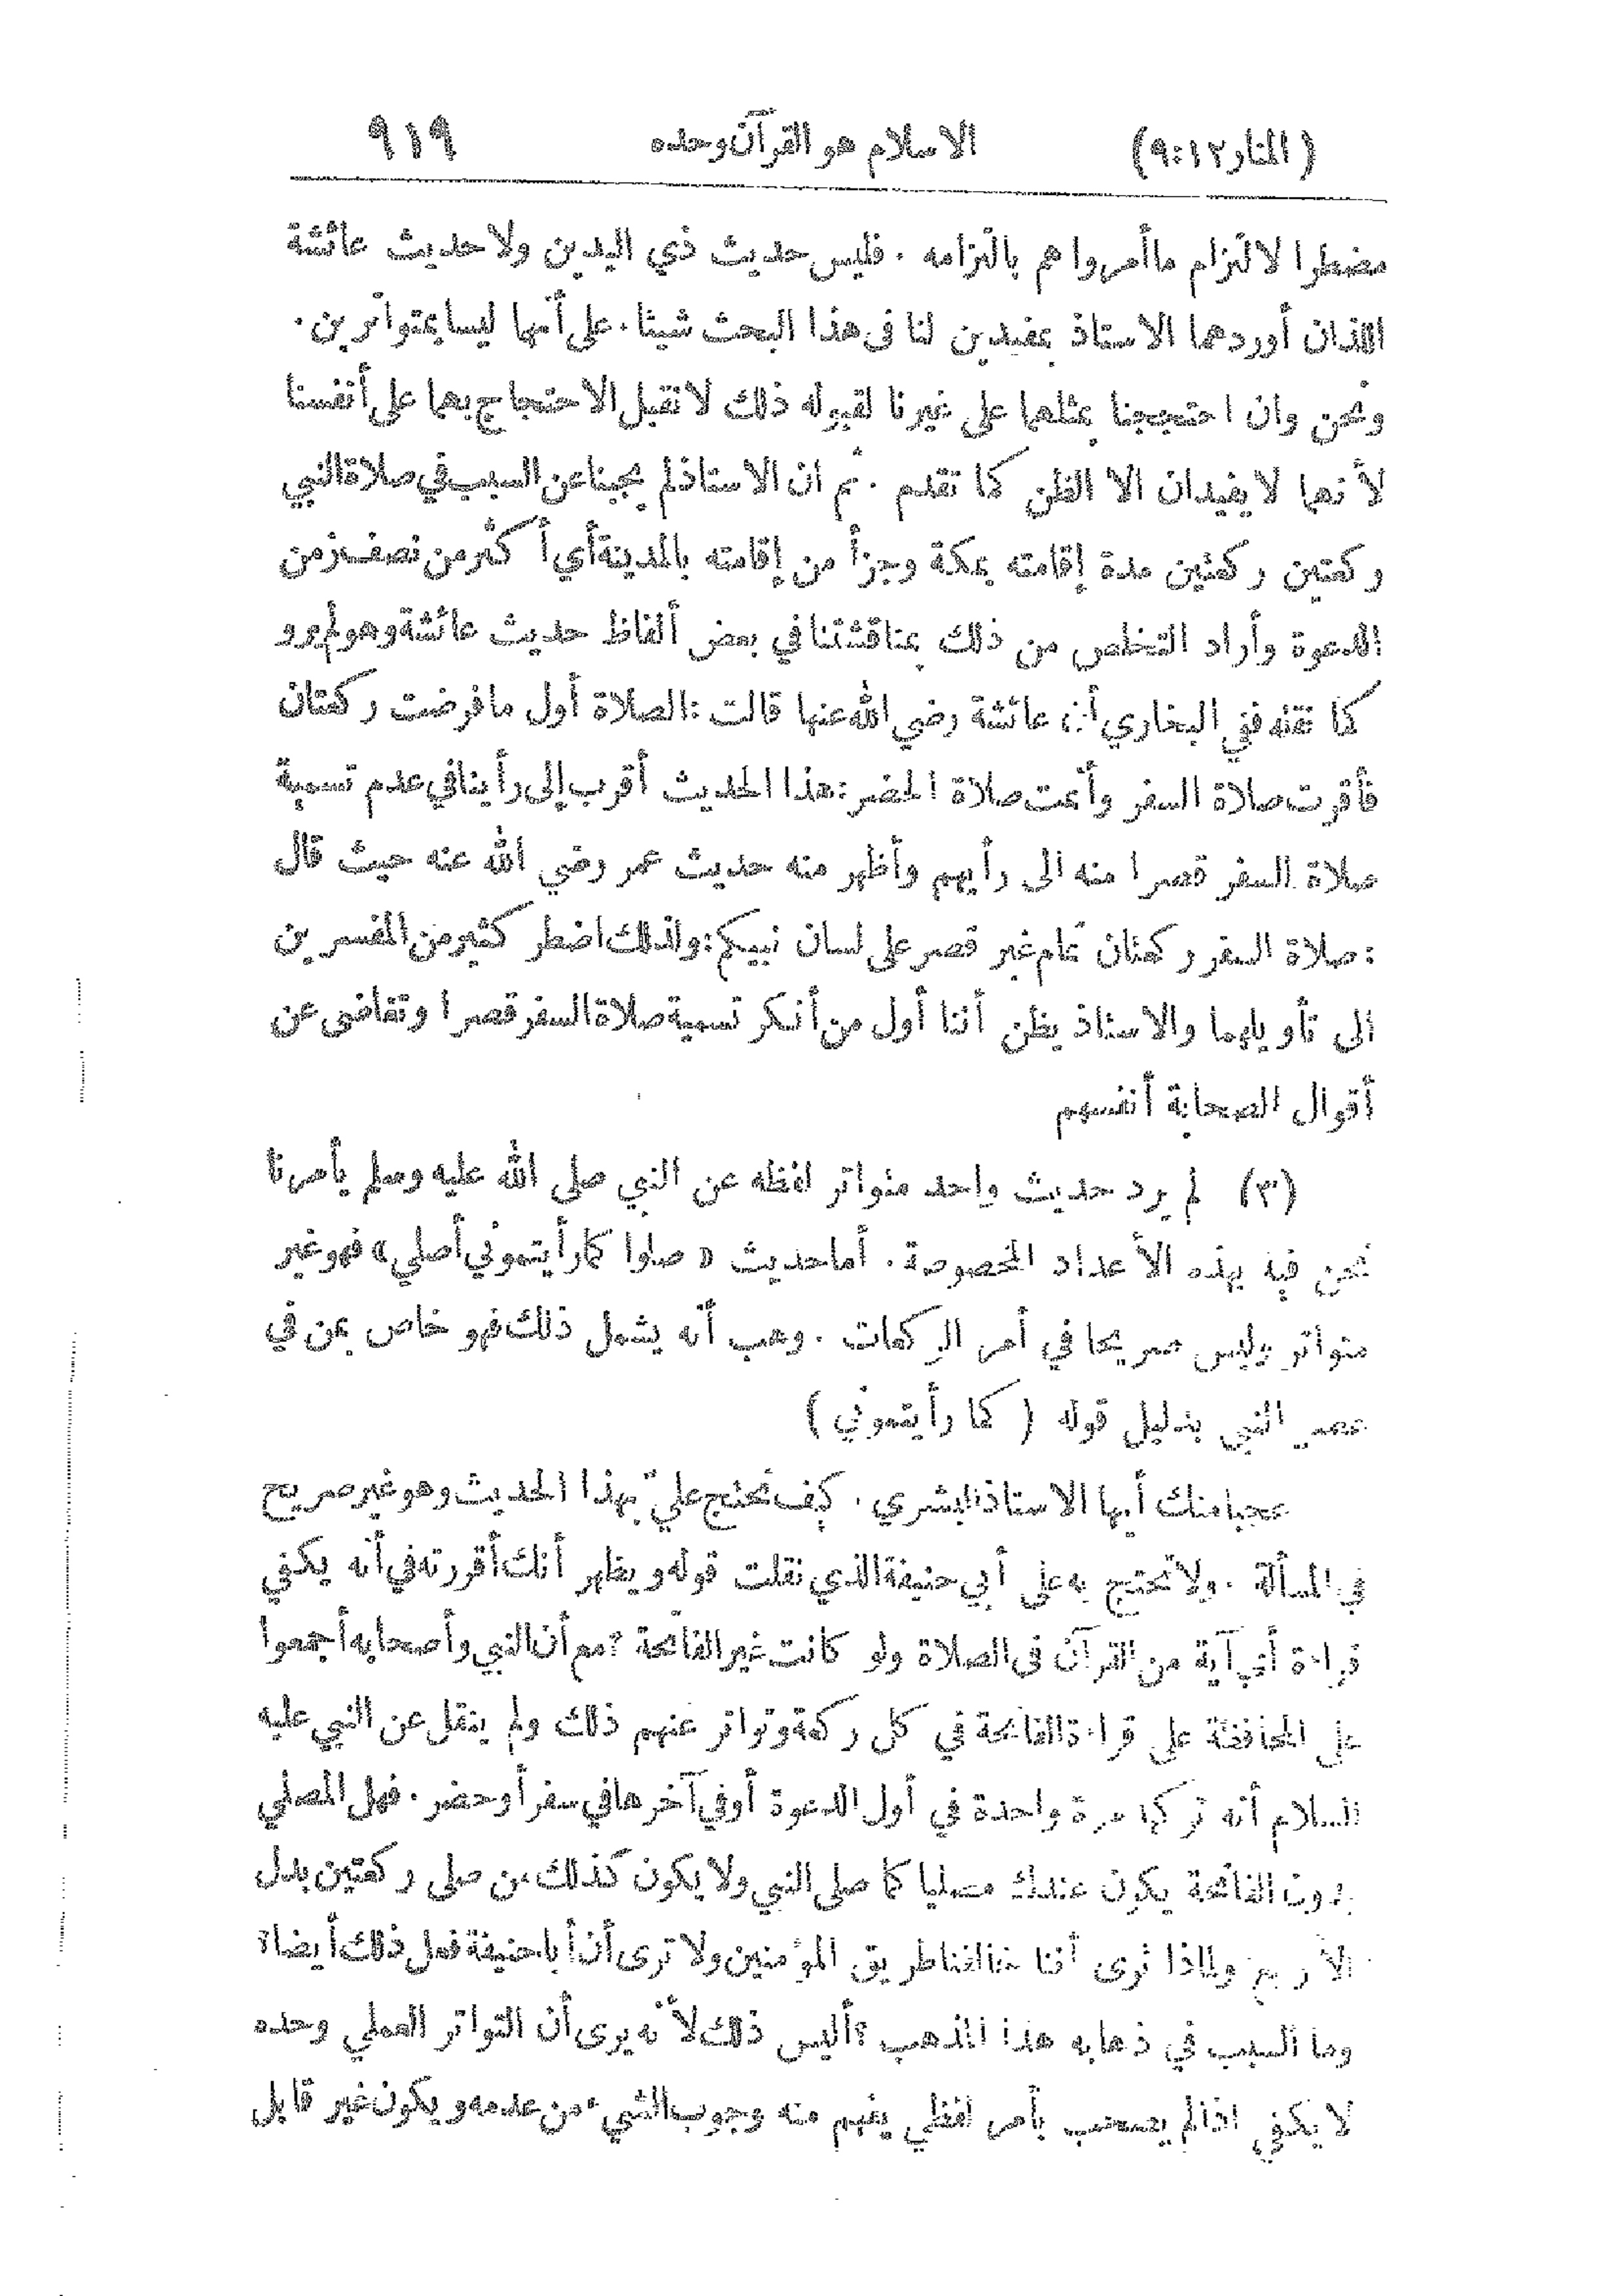 (المنار ١٢:٩) الاسلام هو القرآن وحده ٩١٩
مضطرا لالتزام ما أمروا هم بالتزامه . فليس حديث ذي اليدين ولا حديث عائشة
اللذان أوردهما الاستاذ بمفيدين لنا في هذا البحث شيئا . على أنهما ليسا بمتواترين .
ونحن وان احتججنا بمثلهما على غيرنا لقبوله ذلك لا نقبل الاحتجاج بهما على أنفسنا
لأنهما لا يفيدان الا الظن كما تقدم . ثم ان الاستاذ لم يجبنا عن السبب في صلاة النبي
ركعتين ركعتين مدة إقامته بمكة وجزأ من إقامته بالمدينة أي أكثر من نصف زمن
الدعوة وأراد التخلص من ذلك بمناقشتنا في بعض ألفاظ حديث عائشة وهو لم يرو
كما نقله ففي البخاري أن عائشة رضي الله عنها قالت : الصلاة أول ما فرضت ركعتان
فأقرت صلاة السفر وأتمت صلاة الحضر : هذا الحديث أقرب إلى رأينا في عدم تسمية
صلاة السفر قصرا منه الى رأيهم وأظهر منه حديث عمر رضي الله عنه حيث قال
: صلاة السفر ركعتان تمام غير قصر على لسان نبيكم : ولذلك اضطر كثير من المفسرين
الى تأويلهما والاستاذ يظن أننا أول من أنكر تسمية صلاة السفر قصرا وتغاضى عن
أقوال الصحابة أنفسهم
(٣) لم يرد حديث واحد متواتر لفظه عن النبي صلى الله عليه وسلم يأمرنا
نحن فيه بهذه الأعداد المخصوصة . أما حديث « صلوا كما رأيتموني أصلي » فهو غير
متواتر وليس صريحا في أمر الركعات . وهب أنه يشمل ذلك فهو خاص بمن في
عصر النبي بدليل قوله ( كما رأيتموني )
عجبا منك أيها الاستاذ البشري . كيف تحتج عليّ بهذا الحديث وهو غير صريح
في المسألة . ولا تحتج به على أبي حنيفة الذي نقلت قوله ويظهر أنك أقررته في أنه يكفي
قراءة أي آية من القرآن في الصلاة ولو كانت غير الفاتحة ؟ مع أن النبي وأصحابه أجمعوا
على المحافظة على قراءة الفاتحة في كل ركعة وتواتر عنهم ذلك ولم ينقل عن النبي عليه
السلام أنه تركها مرة واحدة في أول الدعوة أو في آخرها في سفر أو حضر . فهل المصلي
بدون الفاتحة يكون عندك مصليا كما صلى النبي ولا يكون كذلك من صلى ركعتين بدل
الأربع ولماذا ترى أننا خالفنا طريق المؤمنين ولا ترى أن أبا حنيفة فعل ذلك أيضا ؟
وما السبب في ذهابه هذا المذهب ؟ أليس ذلك لأنه يرى أن التواتر العملي وحده
لا يكفي اذا لم يصحب بأمر لفظي يفهم منه وجوب الشيء من عدمه ويكون غير قابل